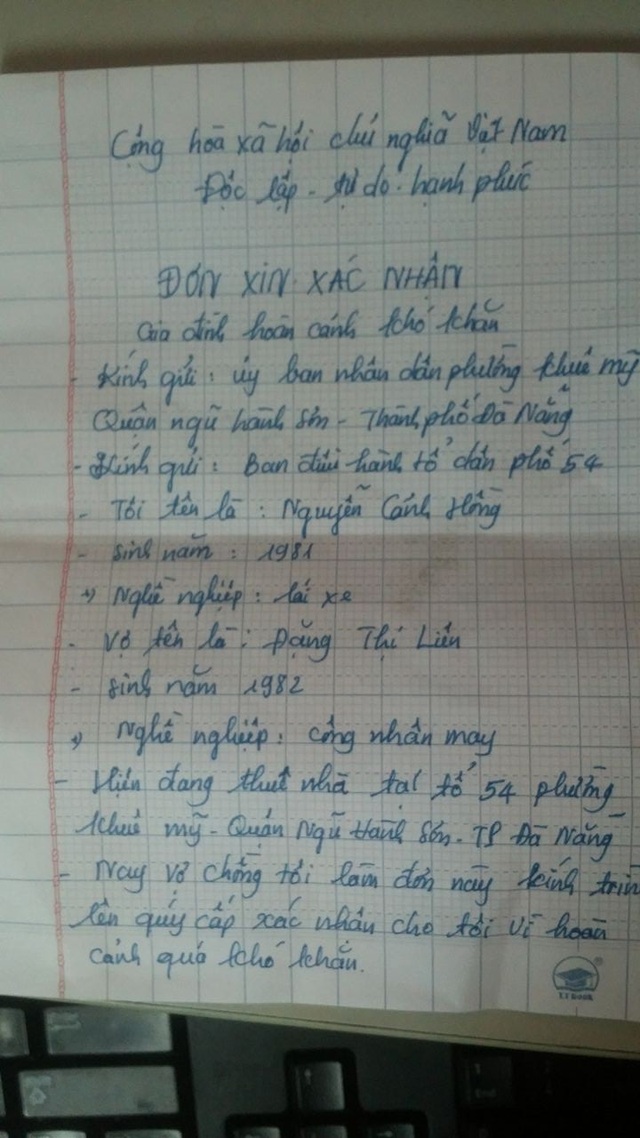 Cộng hoà xã hội chủ nghĩa Việt Nam
Độc lập - tự do - hạnh phúc
ĐƠN XIN XÁC NHẬN
Gia đình hoàn cảnh khó khăn
- Kính gửi : ủy ban nhân dân phường khuê mỹ
Quận ngũ hành sơn - Thành phố Đà Nẵng
- Kính gửi : Ban điều hành tổ dân phố 54
- Tôi tên là : Nguyễn Cảnh Hồng
- sinh năm : 1981
+) Nghề nghiệp : lái xe
- Vợ tên là : Đặng Thị Liên
- sinh năm 1982
+) Nghề nghiệp : công nhân may
- Hiện đang thuê nhà tại tổ 54 phường
khuê mỹ - Quận Ngũ Hành Sơn - TP Đà Nẵng
- Nay vợ chồng tôi làm đơn này kính trìn
lên quý cấp xác nhân cho tôi vì hoàn
cảnh quá khó khăn.